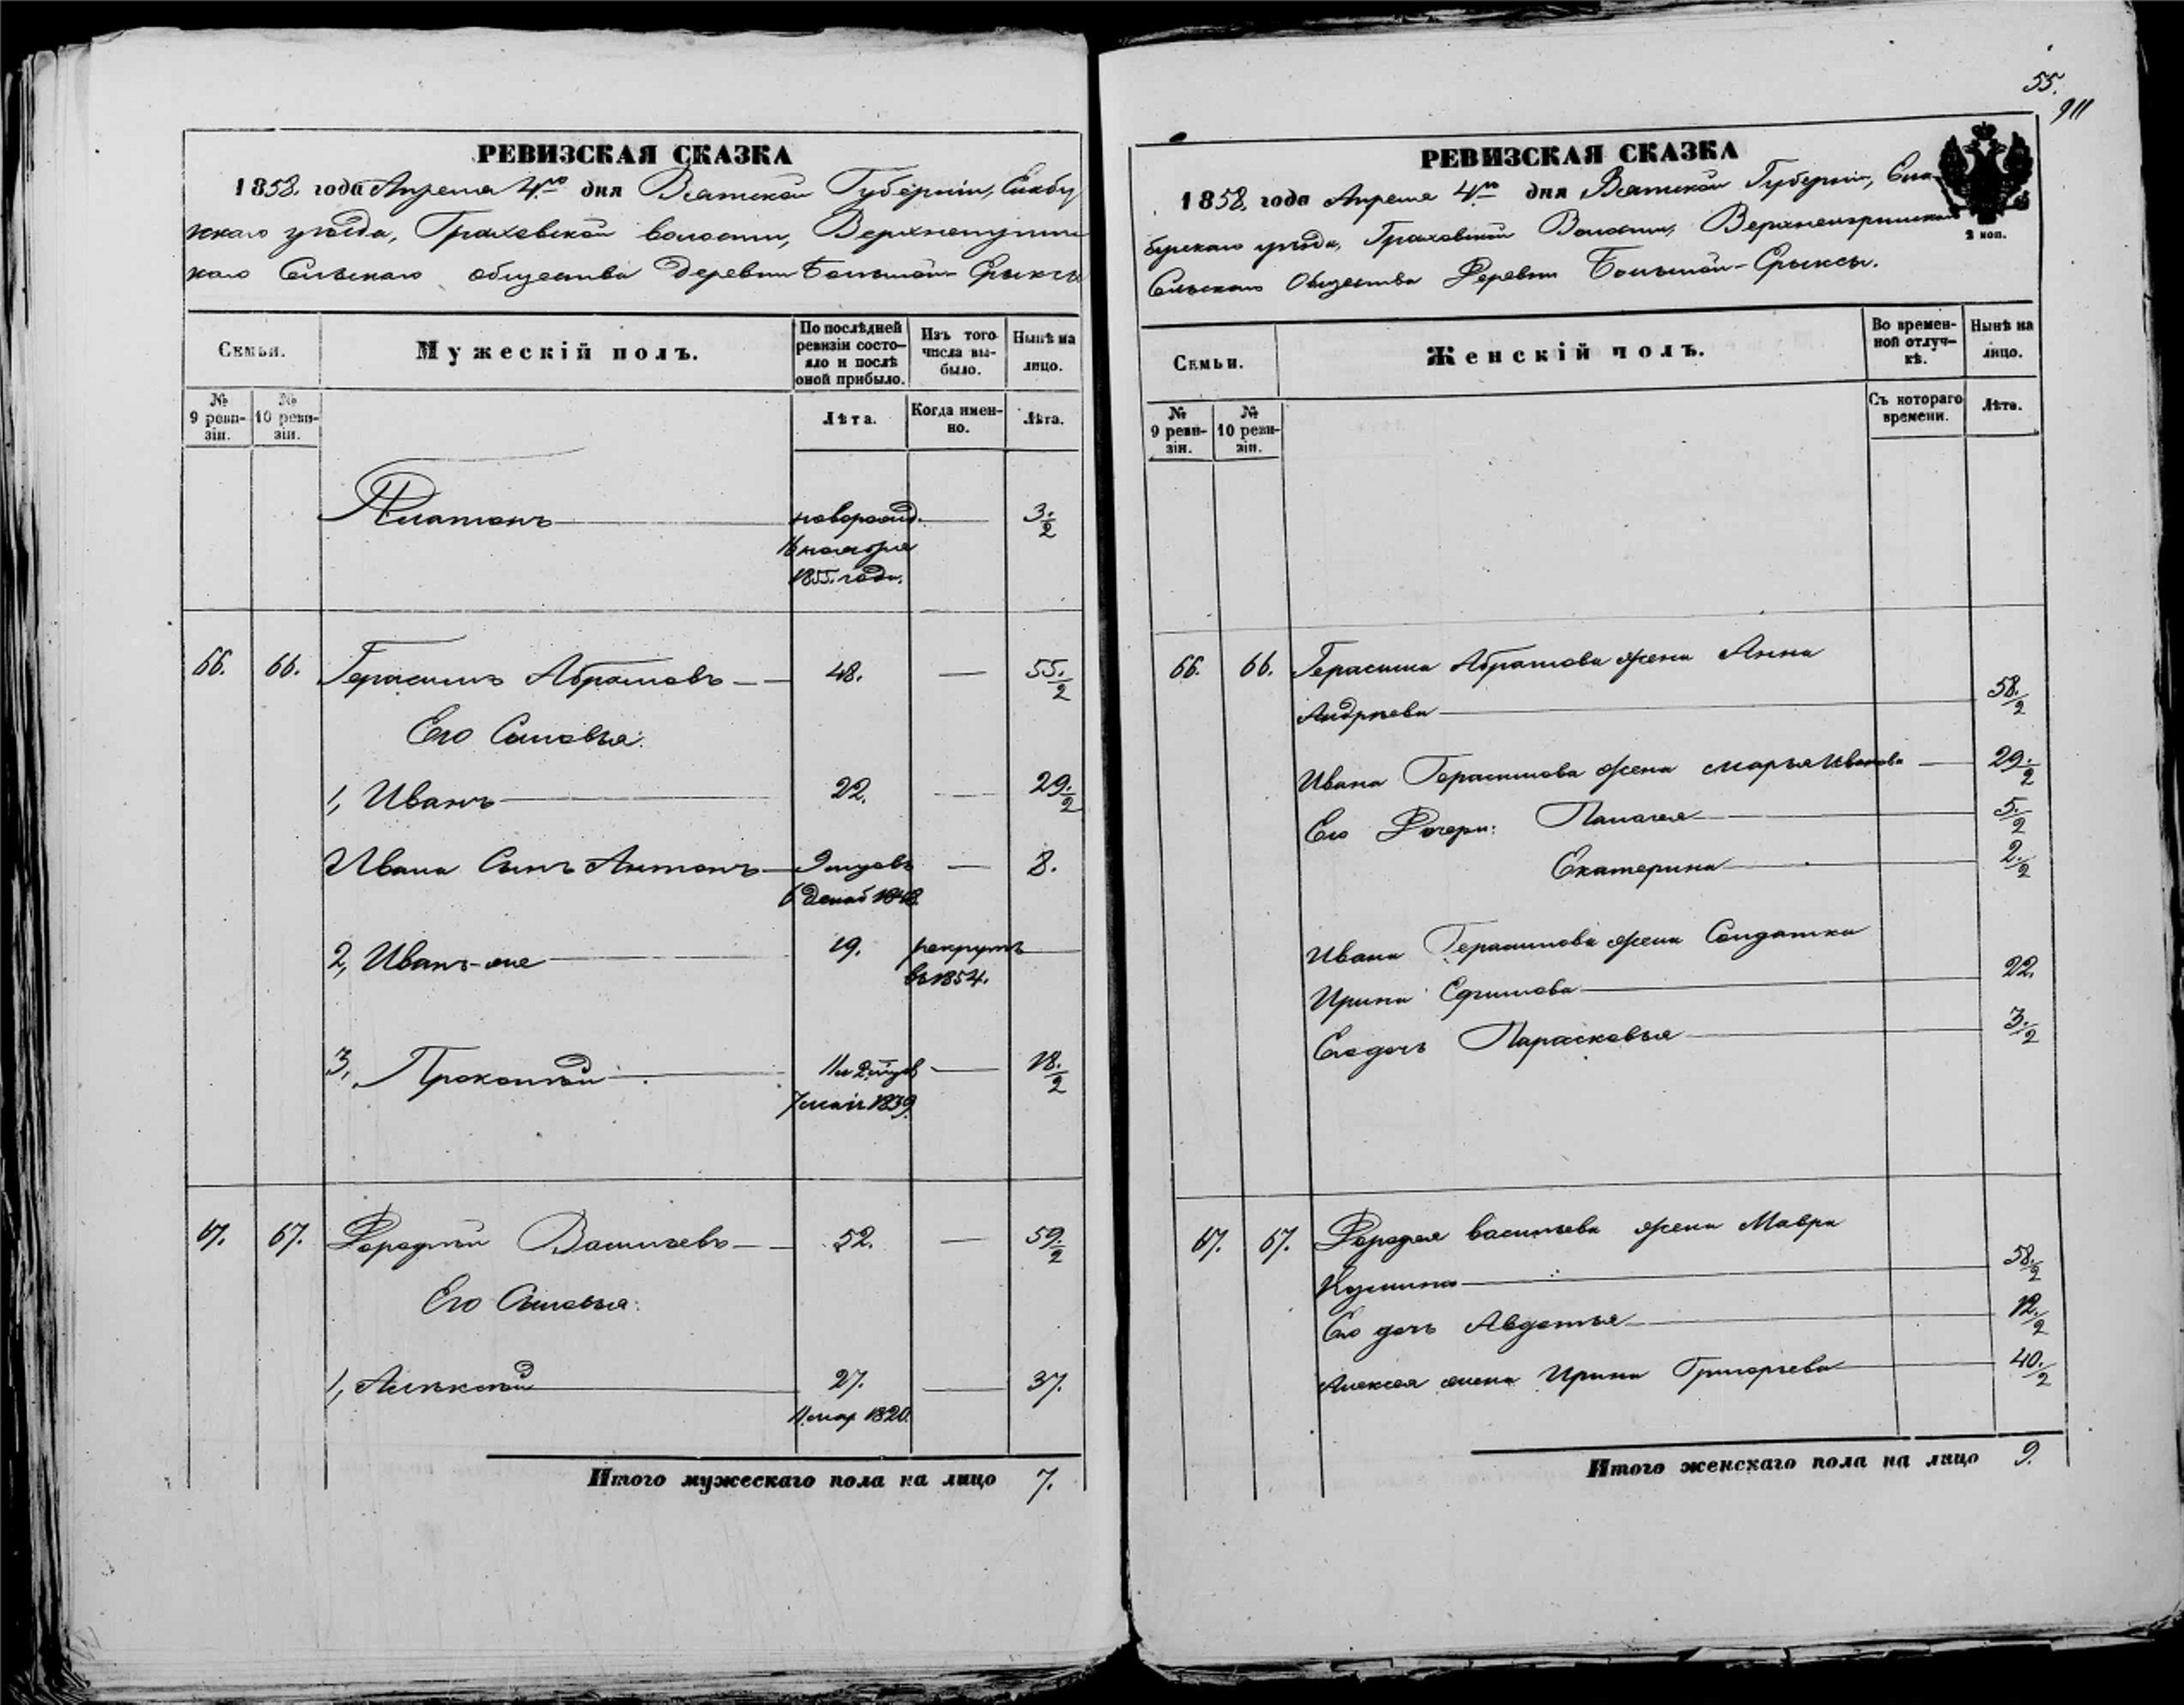 РЕВИЗСКАЯ СКАЗКА
1858. года Апреля 4го дня Вятской Губерніи, Елабу
жскаго уѣзда, Граховской волости,
Сельскаго общества деревни Большой-Ерыксы
Семьи.
Мужескій полъ.
По послѣдней ревизіи состояло и послѣ оной прибыло.
Изъ того числа выбыло.
Нынѣ на лицо.
№ 9 ревизіи.
№ 10 ревизіи.
Лѣта.
Когда именно.
Лѣта.
Платонъ новорожд. — 3 1/2
16 ноября
1855 года.
66. 66. Герасимъ Абрамовъ — 48. — 55. 1/2
Его Сыновья:
1, Иванъ 22. — 29. 1/2
Ивана Сынъ Антонъ — 8.
6 декаб 1848.
2, Иванъ-же 19. рекрутъ
въ 1854.
3, Прокопій — 18. 1/2
7 маія 1839
67. 67. Васильевъ — 52. — 59. 1/2
Его Сыновья:
1, Алексѣй 27. — 37.
11 мар 1820.
Итого мужескаго пола на лицо 7.
55.
911
РЕВИЗСКАЯ СКАЗКА
1858. года Апреля 4го дня Вятской Губерніи, Ела-
бужскаго уѣзда, Граховской Волости,
Сельскаго Общества Деревни Большой-Ерыксы.
2 коп.
Семьи.
Женскій полъ.
Во временной отлучкѣ.
Нынѣ на лицо.
№ 9 ревизіи.
№ 10 ревизіи.
Съ котораго времени.
Лѣта.
66. 66. Герасима Абрамова жена Анна
Андреева 58. 1/2
Ивана Герасимова жена Марья Иванова — 29. 1/2
Его Дочери: Палагея 5. 1/2
Екатерина 2. 1/2
Ивана Герасимова жена Солдатка
Ирина Ефимова 22.
Его дочь Парасковья 3. 1/2
67. 67. Васильева жена Мавра
Кузмина 58. 1/2
Его дочь Авдотья 12. 1/2
Алексея жена Ирина Григорьева 40. 1/2
Итого женскаго пола на лицо 9.